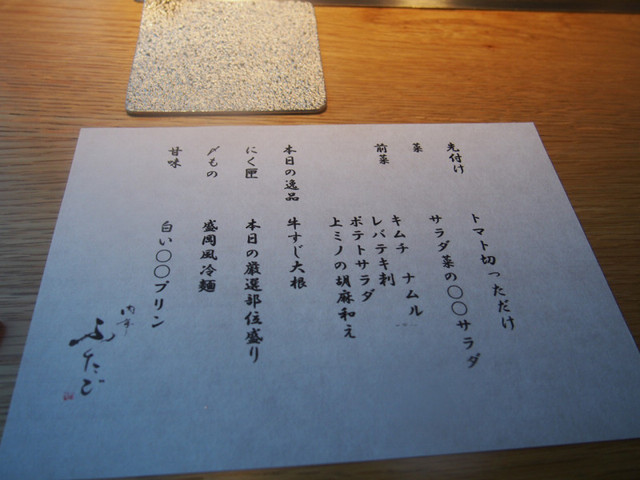 先付け
トマト切っただけ
菜
サラダ菜の〇〇サラダ
前菜
キムチ ナムル
レバテキ刺
ポテトサラダ
上ミノの胡麻和え
本日の逸品
牛すじ大根
にく匣
本日の厳選部位盛り
〆もの
盛岡風冷麺
甘味
白い〇〇プリン
ふたご